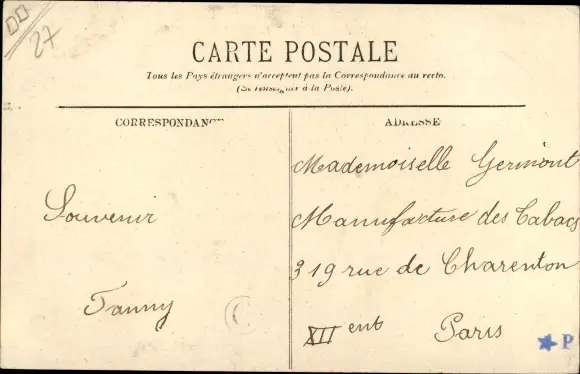 27
CARTE POSTALE
Tous les Pays étrangers n'acceptent pas la Correspondance au recto.
(Se renseigner à la Poste).
CORRESPONDANCE
ADRESSE
Souvenir
Fanny
Mademoiselle Germont
Manufacture des Tabacs
319 rue de Charenton
XII ent Paris
P